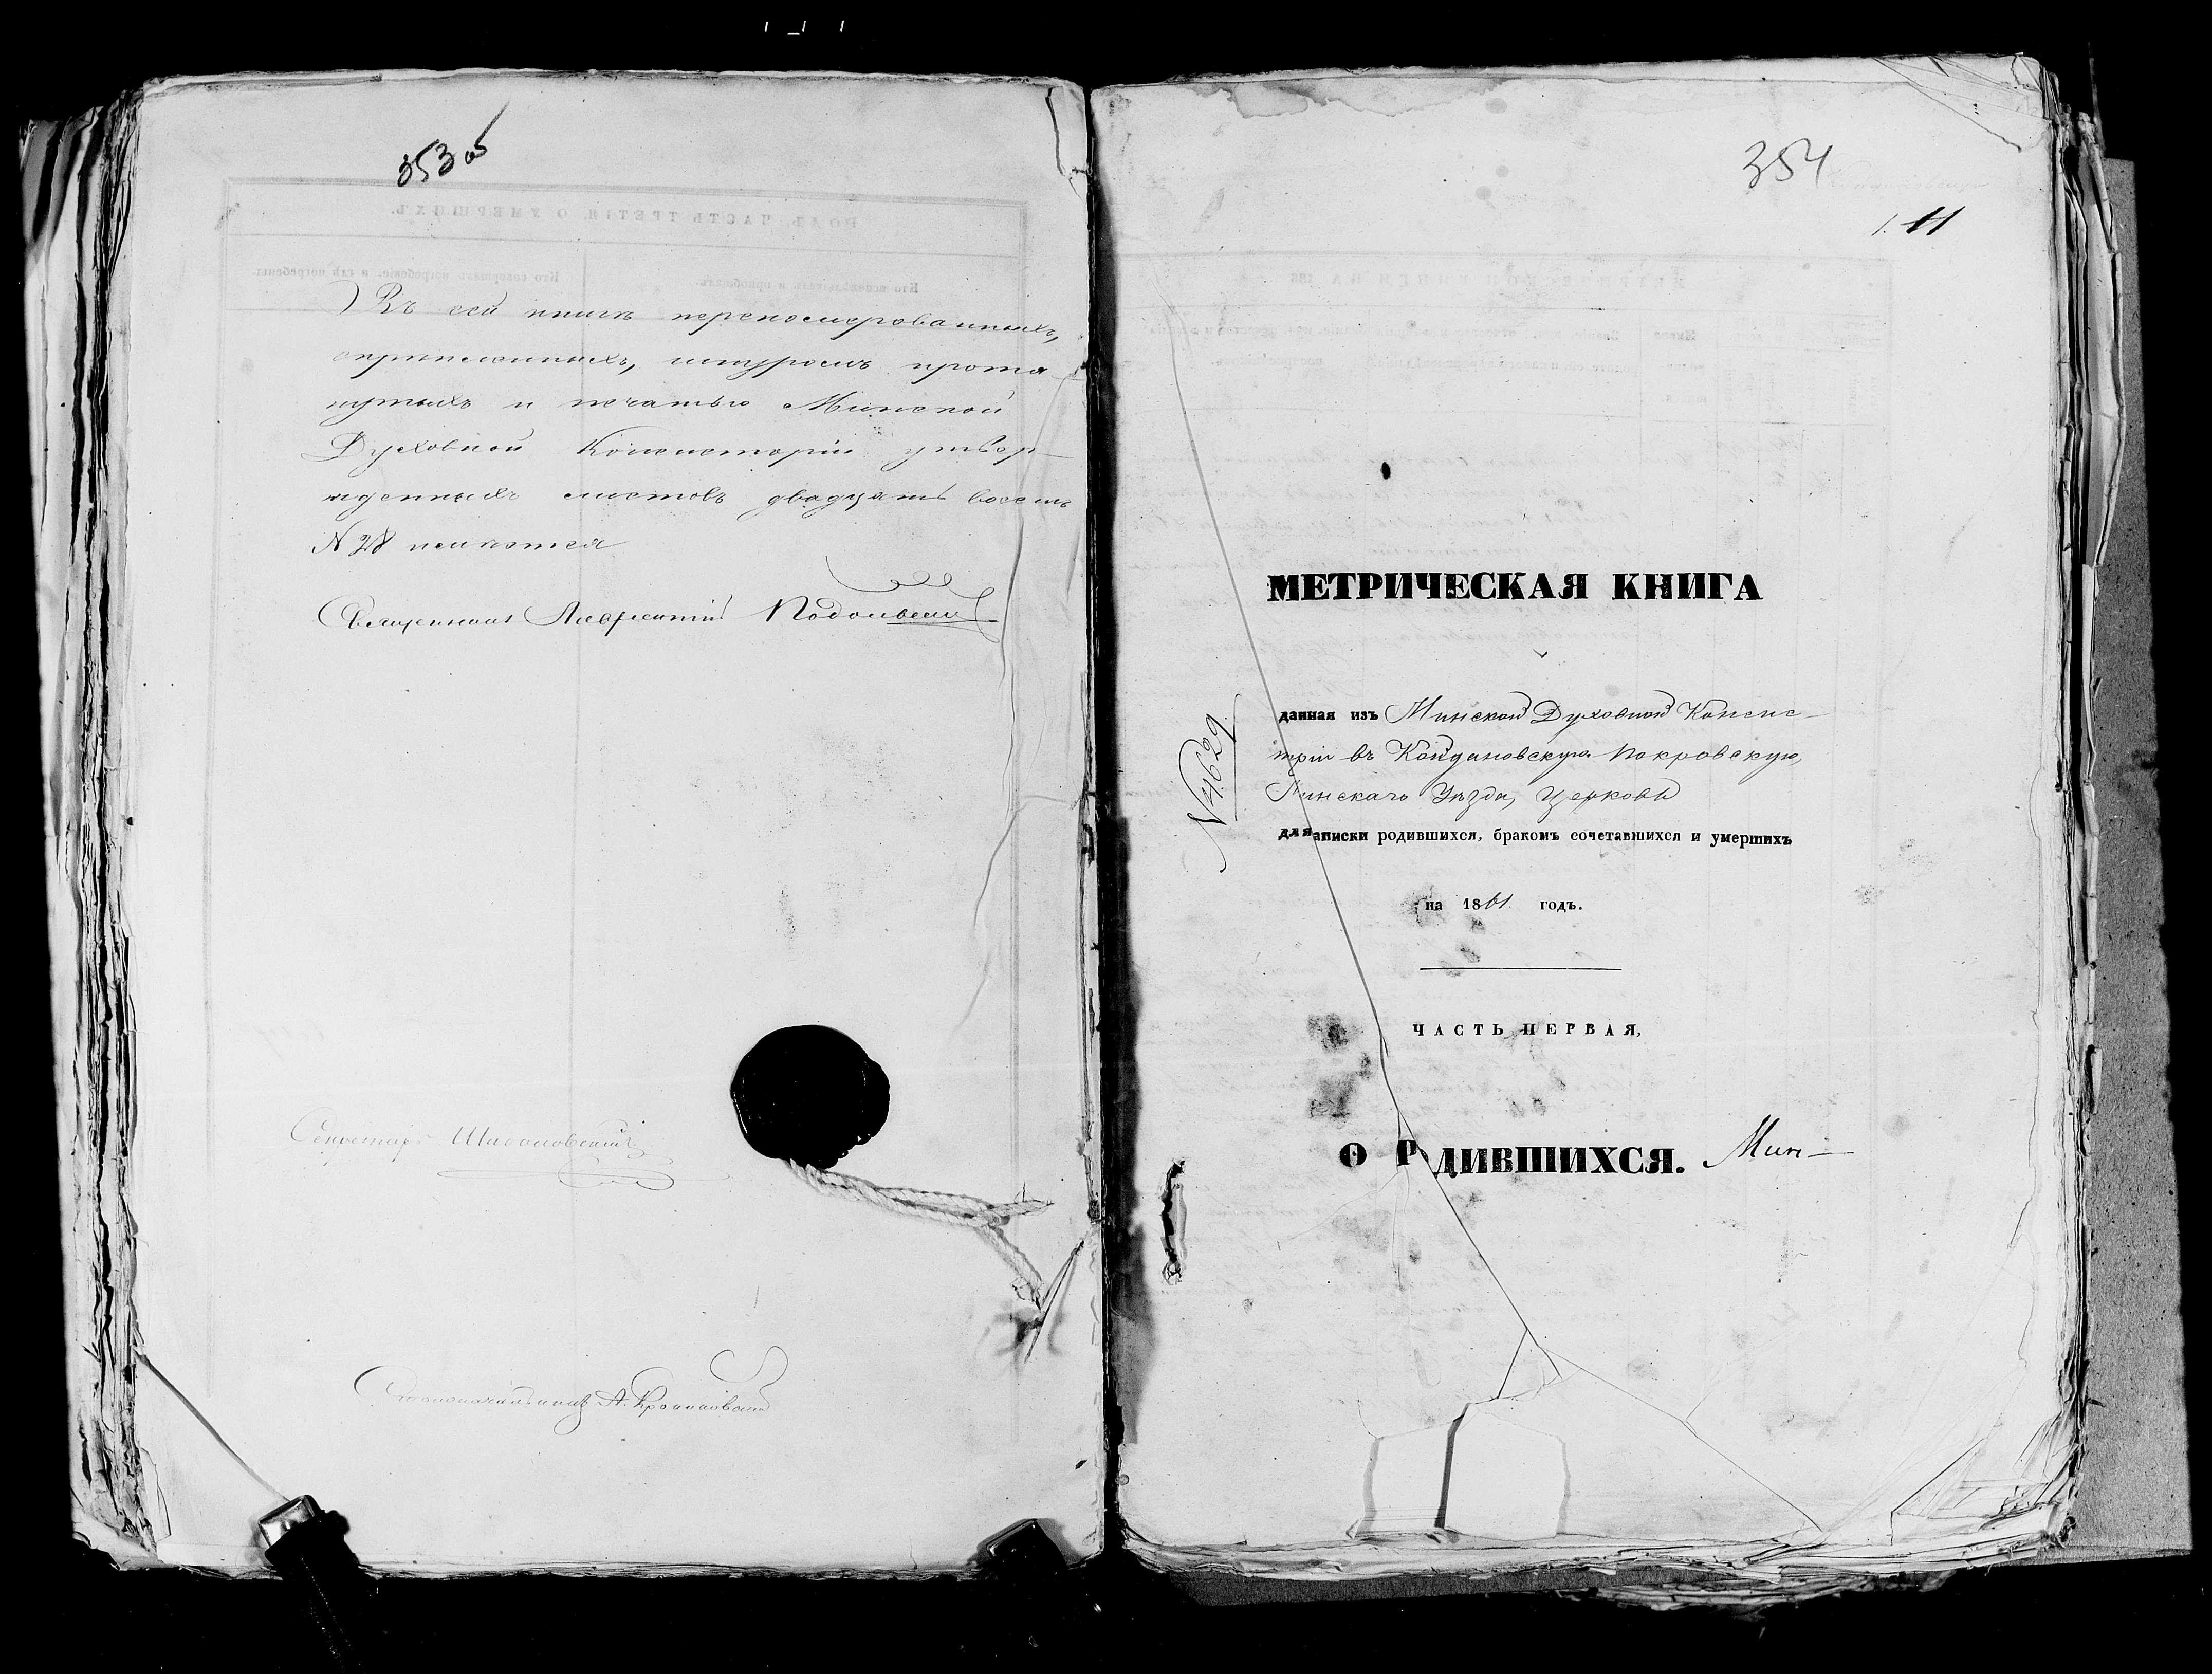 353 об
Въ сей книгѣ переномерованныхъ,
скрепленныхъ, шнуромъ протя
нутыхъ и печатью Минской
Духовной Консисторіи утвер
жденныхъ листовъ двадцать восемь
N 28 имѣется
Священникъ Лаврентій
Секретарь
Столоначальникъ А.
354
1. 11
МЕТРИЧЕСКАЯ КНИГА
N 4629
данная изъ Минской Духовной Консис-
торіи въ Койдановскую Покровскую,
Минскаго Уѣзда, Церковь
для записки родившихся, бракомъ сочетавшихся и умершихъ
на 1861 годъ.
ЧАСТЬ ПЕРВАЯ,
О РОДИВШИХСЯ. Мин-